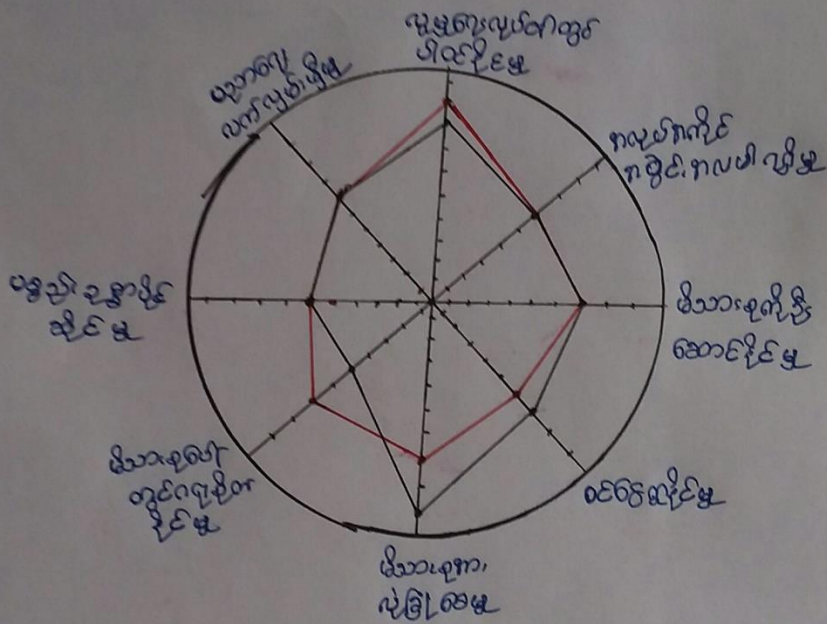 လူမှုရေးလုပ်ငန်းတွင်
ပါဝင်နိုင်မှု
အလုပ်အကိုင်
အခွင့်အလမ်းရရှိမှု
မိသားစုကိုဦး
ဆောင်နိုင်မှု
ဝင်ငွေရနိုင်မှု
မိသားစုအား
လုံခြုံစေမှု
မိသားစုပေါ်
တွင်ဂရုစိုက်
နိုင်မှု
ပစ္စည်းဥစ္စာပိုင်
ဆိုင်မှု
ပညာရေး
လက်လှမ်းမှီမှု